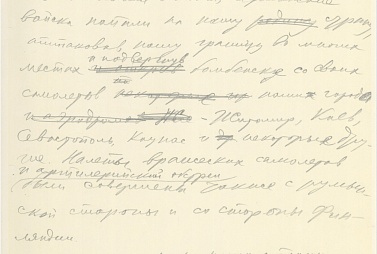 войска напали на нашу родину страну,
атаковав, нашу границу во многих
местах и подвергнув бомбежке со своих
самолетов наши города
– Житомир, Киев,
Севастополь, Каунас и некоторые дру-
гие. Налеты вражеских самолетов
и артиллерийский обстрел
были совершены также с румын-
ской стороны и со стороны Фин-
ляндии